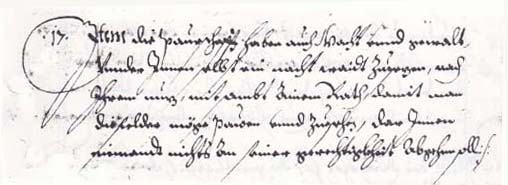 17. Item die Paurschafft haben auch Macht unnd gewalt,
Under Innen selbst ein nacht waidt Zuegen, nach
Ihrem nuz, mit ambt Ainem Rath, damit man
die felder möge Pauen unnd Zuegen, das Innen
niemandt nichts an seiner gerechtigkhait abgehen soll